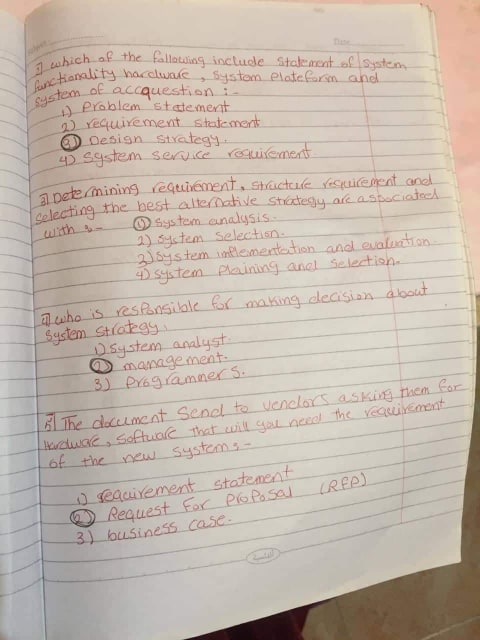 2) which of the following include statement of system
functionality hardware, system plateform and
system of accquestion :-
1) Problem statement
2) requirement statment
3) Design strategy.
4) System service requirement.
3) Determining requirement, structure requirement and
selecting the best alternative strategy are associated
with :-
1) System analysis.
2) System selection.
3) System implementation and evaluation.
4) System planing and selection.
4) who is responsible for making decision about
System strategy.
1) System analyst.
2) management.
3) Programmers.
5) The document Send to vendors asking them for
Hardware, Software that will you need the requirement
of the new system :-
1) requirement statement
2) Request For Proposal (RFP)
3) business case.